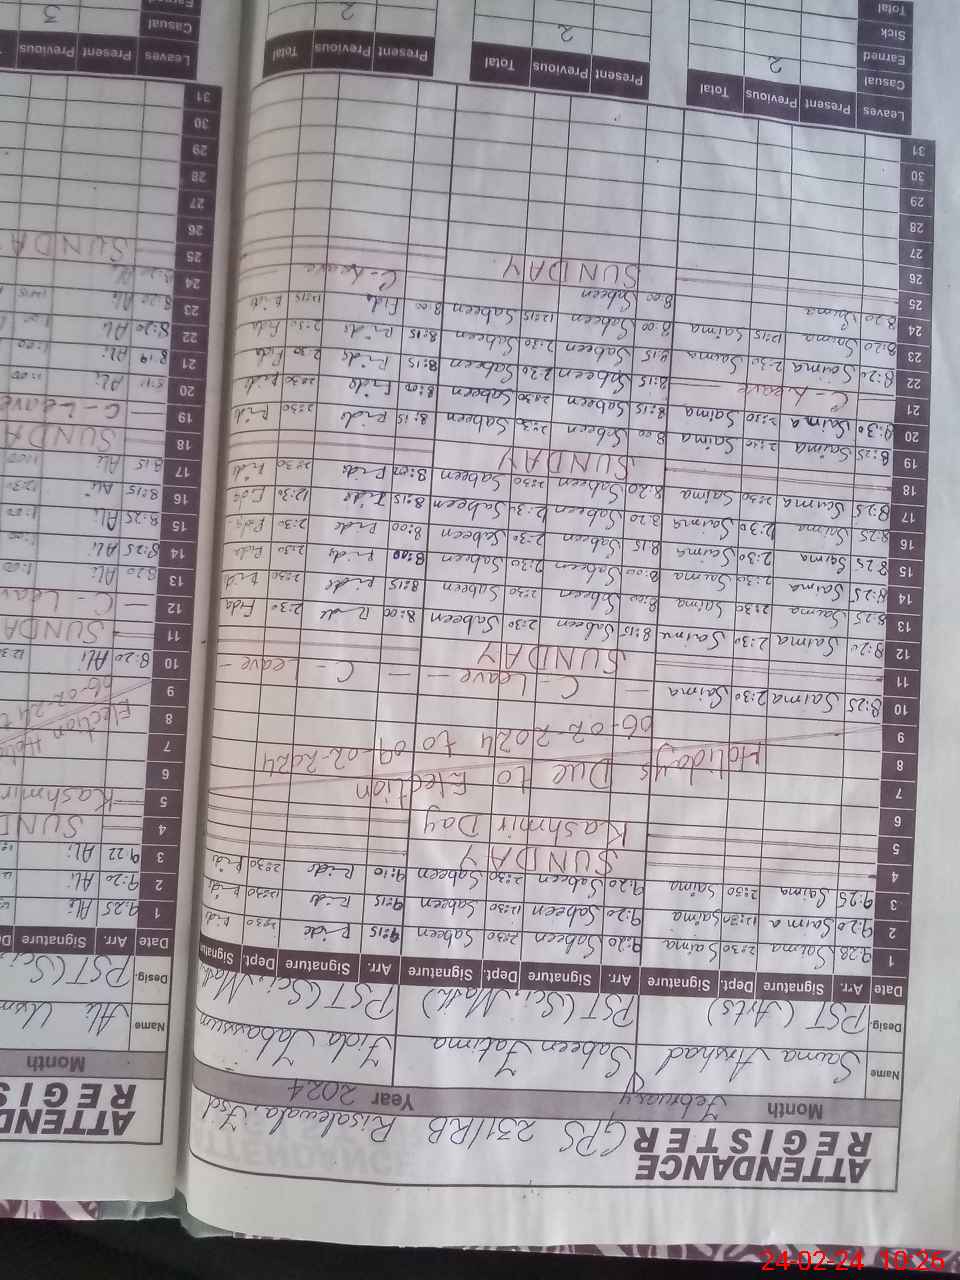 ATTENDANCE REGISTER GPS 231/RB Risalewala, Fsd
Month February Year 2024
Name Saima Arshad Sabeen Fatima Fida Tabassum
Desig. PST (Arts) PST (Sci, Math) PST (Sci, Math)
Date Arr. Signature Dept. Signature Arr. Signature Dept. Signature Arr. Signature Dept. Signature
1 9:28 Saima 2:30 Saima 9:20 Sabeen 2:30 Sabeen 9:15 Fida 2:30 Fida
2 9:20 Saima 12:30 Saima 9:20 Sabeen 12:30 Sabeen 9:15 Fida 12:30 Fida
3 9:25 Saima 2:30 Saima 9:20 Sabeen 2:30 Sabeen 9:10 Fida 2:30 Fida
4 SUNDAY
5 Kashmir Day
6
7 Holidays Due to Election
8 06-02-2024 to 09-02-2024
9
10 8:25 Saima 2:30 Saima C-Leave C-Leave
11 SUNDAY
12 8:20 Saima 2:30 Saima 8:15 Sabeen 2:30 Sabeen 8:00 Fida 2:30 Fida
13 8:25 Saima 2:30 Saima 8:00 Sabeen 2:30 Sabeen 8:15 Fida 2:30 Fida
14 8:25 Saima 2:30 Saima 8:00 Sabeen 2:30 Sabeen 8:00 Fida 2:30 Fida
15 8:25 Saima 2:30 Saima 8:15 Sabeen 2:30 Sabeen 8:00 Fida 2:30 Fida
16 8:25 Saima 12:30 Saima 8:20 Sabeen Sabeen 8:15 Fida 12:30 Fida
17 8:25 Saima 2:30 Saima 8:20 Sabeen 2:30 Sabeen 8:00 Fida 2:30 Fida
18 SUNDAY
19 8:25 Saima 2:30 Saima 8:00 Sabeen 2:30 Sabeen 8:15 Fida 2:30 Fida
20 Saima 2:30 Saima 8:15 Sabeen 2:30 Sabeen 8:00 Fida 2:30 Fida
21 C-Leave 8:15 Sabeen 2:30 Sabeen 8:15 Fida 2:30 Fida
22 8:20 Saima 2:30 Saima 8:15 Sabeen 2:30 Sabeen 8:15 Fida 2:30 Fida
23 8:20 Saima 12:15 Saima 8:00 Sabeen 12:15 Sabeen 8:00 Fida 12:15 Fida
24 8:20 Saima 8:00 Sabeen C-Leave
25 SUNDAY
26
27
28
29
30
31
Leaves Present Previous Total Present Previous Total Present Previous Total
Casual 2 2 2
Earned
Sick
Total
ATTENDANCE REGIS
Month
Name Ali Usm
Desig. PST (Sci
Date Arr. Signature
1 9:25 Ali
2 9:20 Ali
3 9:22 Ali
4 SUND
5 Kashmir
6
7 Election
8 06-02-24
9
10 8:20 Ali
11 SUNDA
12 C-Leav
13 8:20 Ali
14 8:25 Ali
15 8:25 Ali
16 8:15 Ali
17 8:15 Ali
18 SUNDA
19 C-Leave
20 Ali
21 8:19 Ali
22 8:20 Ali
23 8:20 Ali
24 8:20 Ali
25 SUNDA
26
27
28
29
30
31
Leaves Present Previous
Casual 3
24-02-24 10:26